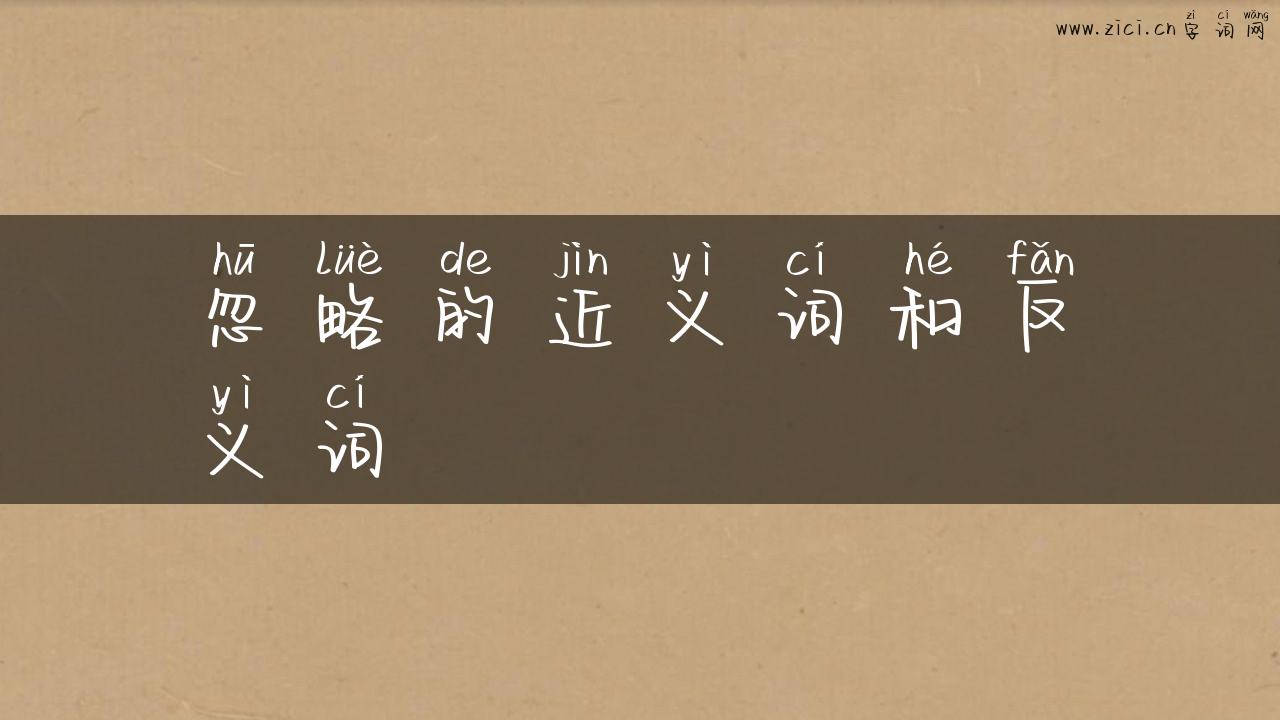 zì cí wǎng
www.zici.cn字词网
hū lüè de jìn yì cí hé fǎn
忽略的近义词和反
yì cí
义词